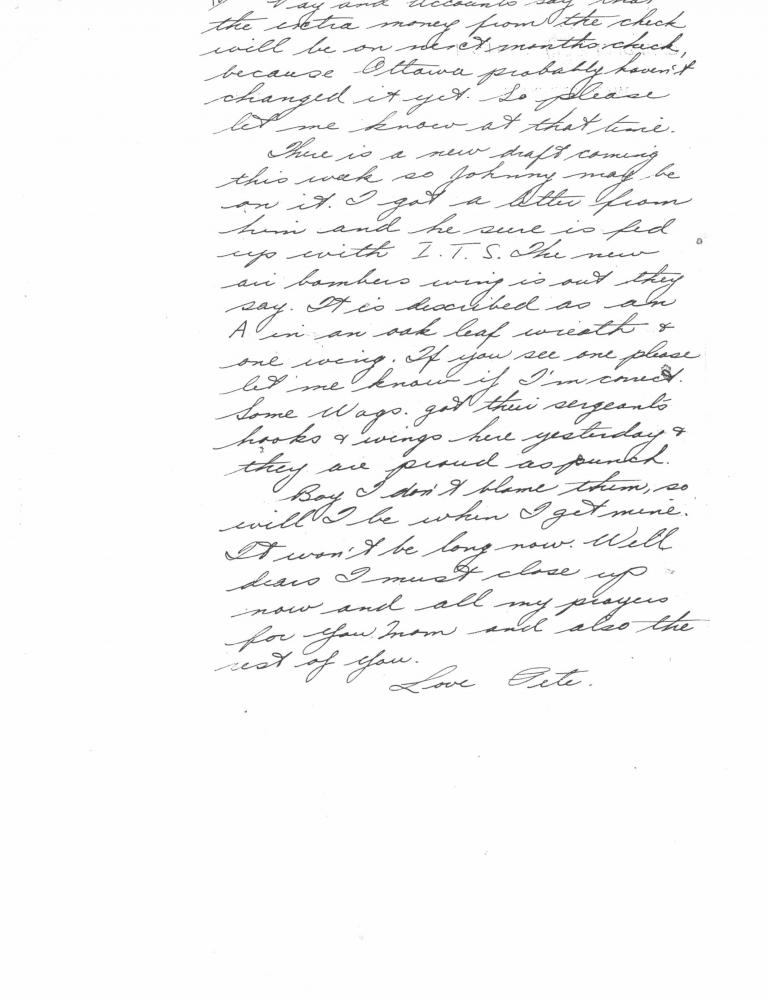 Pay and Accounts say that
the extra money from the check
will be on next months check,
because Ottawa probably haven't
changed it yet. So please
let me know at that time.
There is a new draft coming
this week so Johnny may be
on it. I got a letter from
him and he sure is fed
up with I.T.S. The new
air bombers wing is out they
say. It is described as an
A in an oak leaf wreath &
one wing. If you see one please
let me know if I'm correct.
Some Wags. got their sergeant's
hooks & wings here yesterday &
they are proud as punch.
Boy I don't blame them, so
will I be when I get mine.
It won't be long now. Well
dears I must close up
now and all my prayers
for you Mom and also the
rest of you.
Love Pete.